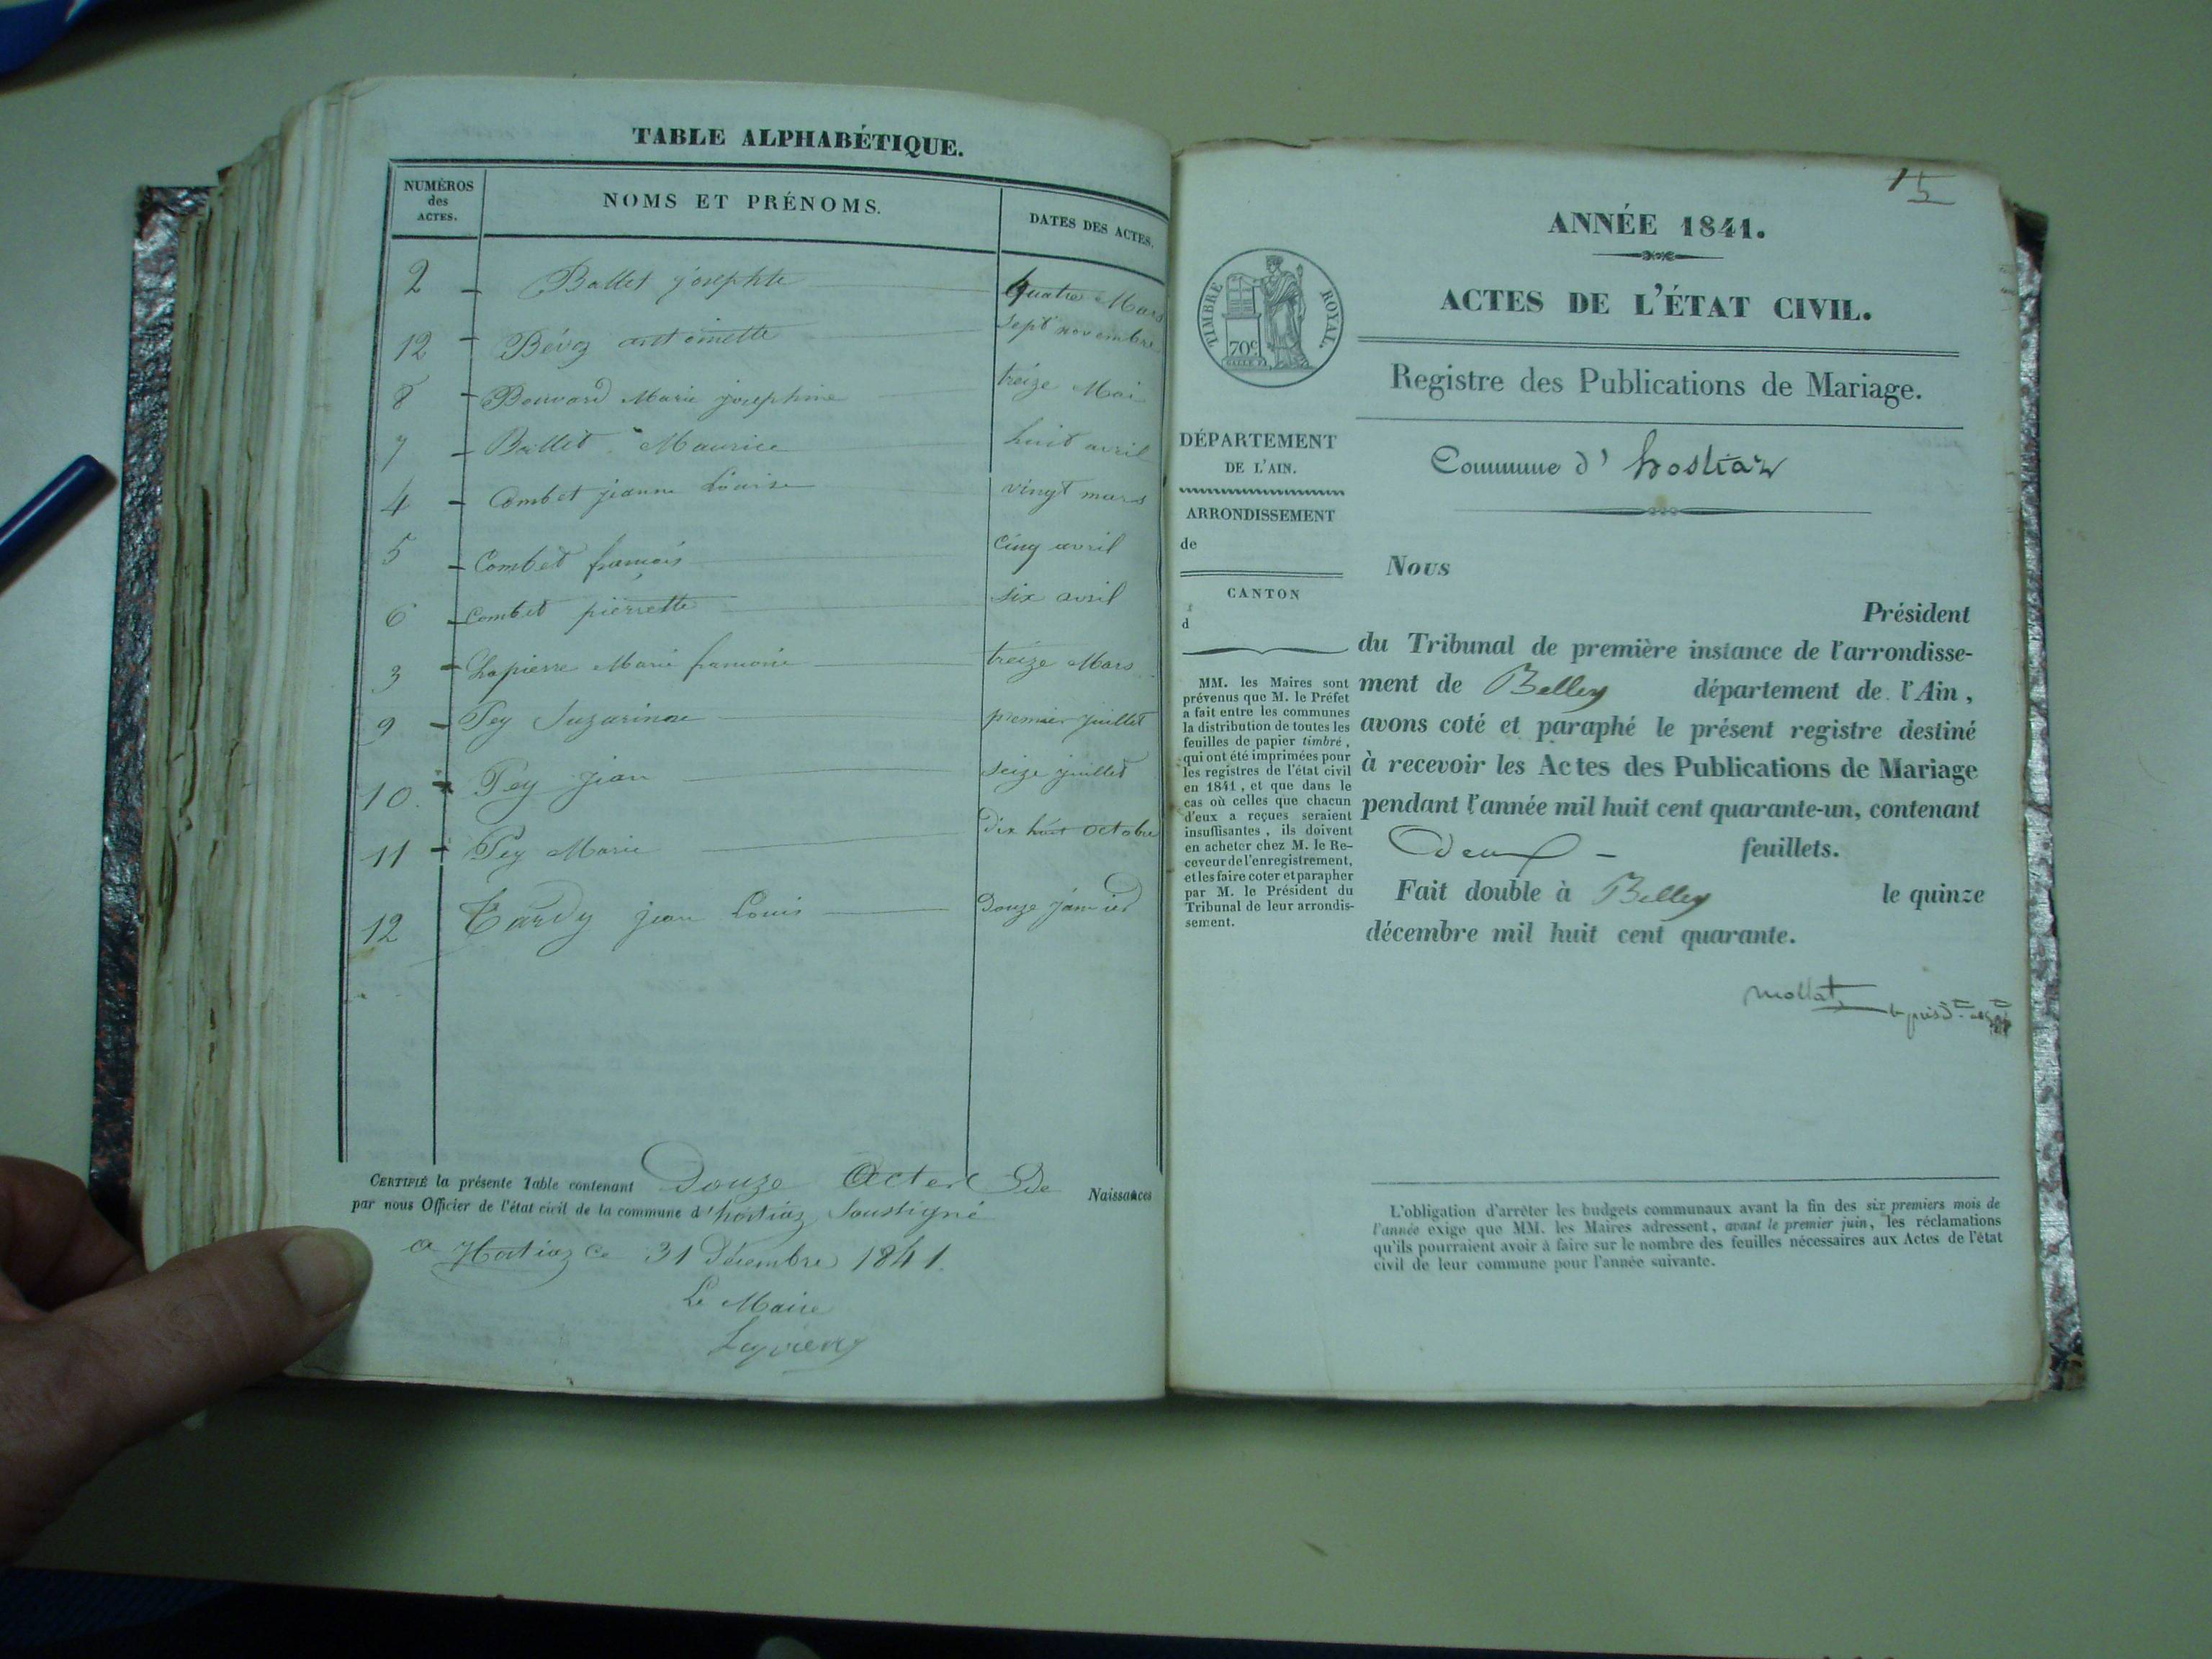 TABLE ALPHABÉTIQUE.
NUMÉROS des ACTES. NOMS ET PRÉNOMS. DATES DES ACTES.
2 Ballet josephte quatre Mars
12 Bévoz antoinette Sept novembre
8 Bouvard Marie josephine treize Mai
7 Ballet Maurice huit avril
4 Combet jeanne Louise vingt mars
5 Combet françois Cinq avril
6 Combet pierrette six avril
3 Lapierre Marie treize Mars
9 Pey premier juillet
10. Pey jean seize juillet
11 Pey Marie Dix huit octobre
12 Tardy jean Louis Douze janvier
CERTIFIÉ la présente Table contenant Douze Actes De Naissances
par nous Officier de l'état civil de la commune d'hostiaz Soussigné
a Hostiaz Ce 31 Décembre 1841.
Le Maire
15
ANNÉE 1841.
ACTES DE L'ÉTAT CIVIL.
TIMBRE ROYAL.
70c
Registre des Publications de Mariage.
Commune d' hostiaz
DÉPARTEMENT
DE L'AIN.
ARRONDISSEMENT
de
CANTON
d
MM. les Maires sont
prévenus que M. le Préfet
a fait entre les communes
la distribution de toutes les
feuilles de papier timbré,
qui ont été imprimées pour
les registres de l'état civil
en 1841, et que dans le
cas où celles que chacun
d'eux a reçues seraient
insuffisantes, ils doivent
en acheter chez M. le Re-
ceveur de l'enregistrement,
et les faire coter et parapher
par M. le Président du
Tribunal de leur arrondis-
sement.
Nous
Président
du Tribunal de première instance de l'arrondisse-
ment de Belley département de l'Ain,
avons coté et paraphé le présent registre destiné
à recevoir les Actes des Publications de Mariage
pendant l'année mil huit cent quarante-un, contenant
Deux feuillets.
Fait double à Belley le quinze
décembre mil huit cent quarante.
Mollat
L'obligation d'arrêter les budgets communaux avant la fin des six premiers mois de
l'année exige que MM. les Maires adressent, avant le premier juin, les réclamations
qu'ils pourraient avoir à faire sur le nombre des feuilles nécessaires aux Actes de l'état
civil de leur commune pour l'année suivante.